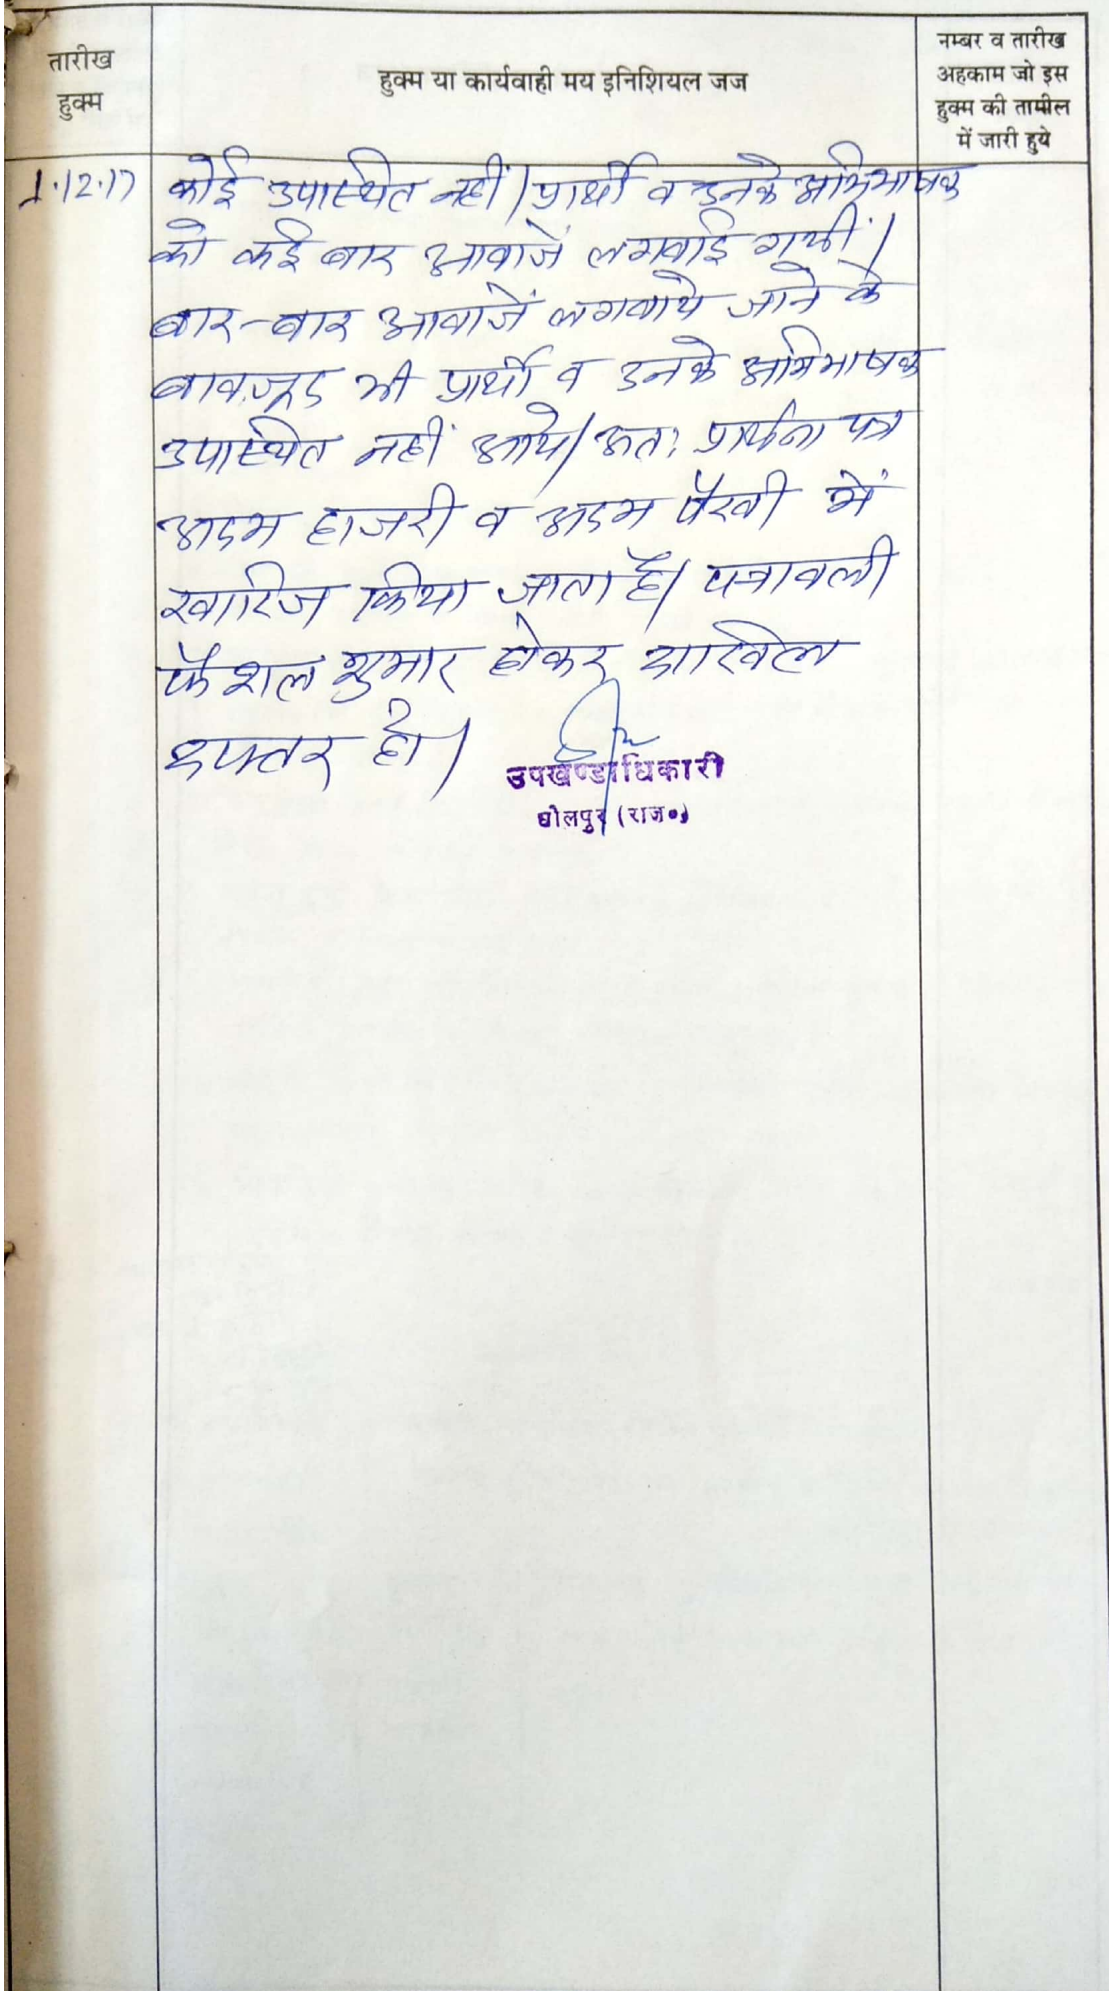 तारीख
हुक्म
हुक्म या कार्यवाही मय इनिशियल जज
नम्बर व तारीख
अहकाम जो इस
हुक्म की तामील
में जारी हुये
1.12.17
कोई उपास्थित नहीं। प्रार्थी व उनके अभिभाषक
को कई बार आवाजें लगवाई गयीं।
बार-बार आवाजें लगवाये जाने के
बावजूद भी प्रार्थी व उनके अभिभाषक
उपास्थित नहीं आये। अतः प्रार्थना पत्र
अदम हाजरी व अदम पैरवी में
खारिज किया जाता है। पत्रावली
फैशल शुमार होकर दाखिल
दफ्तर हो।
उपखण्डाधिकारी
धोलपुर (राज०)